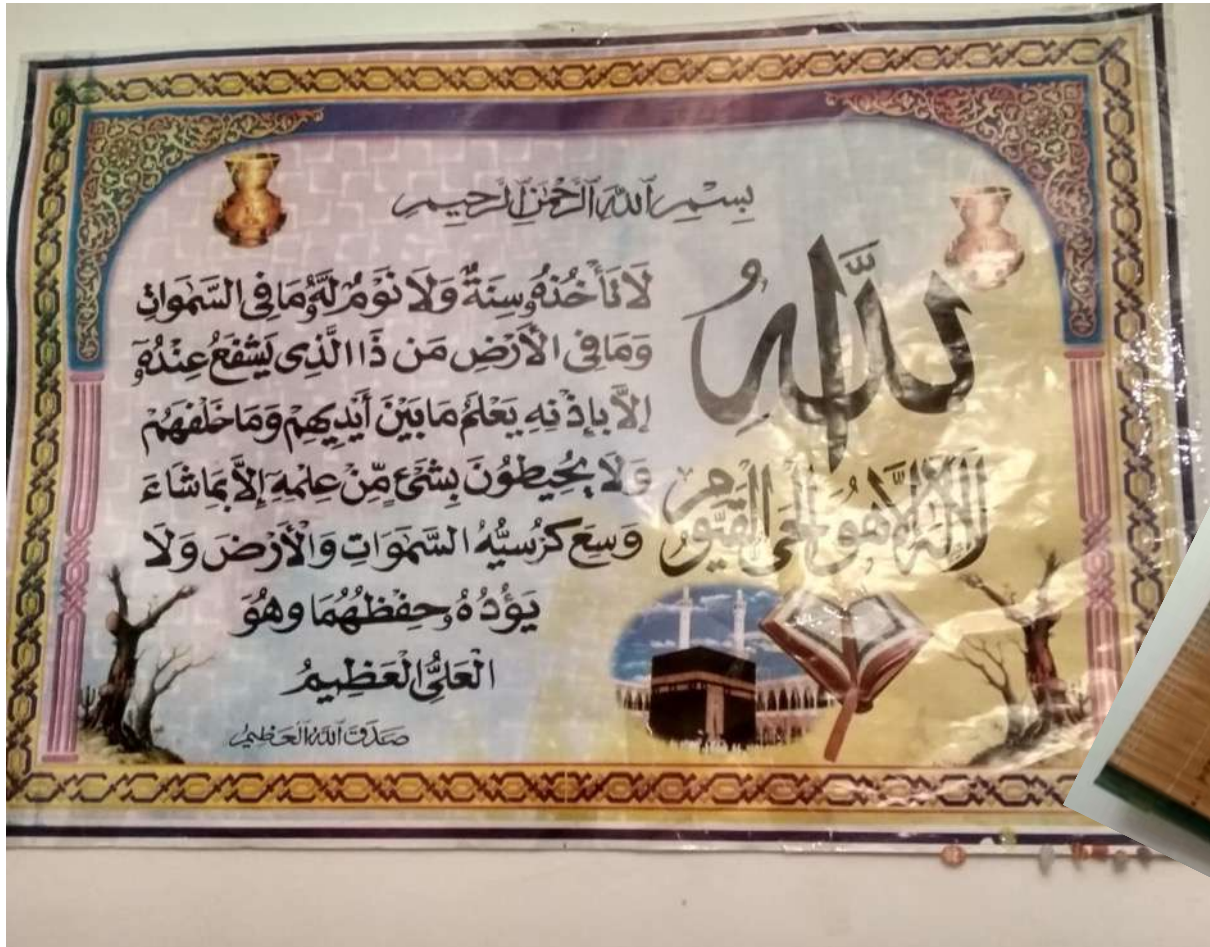 بِسْمِ ٱللَّهِ ٱلرَّحْمَٰنِ ٱلرَّحِيمِ
اللَّهُ
لَا إِلَٰهَ إِلَّا هُوَ الْحَيُّ الْقَيُّومُ
لَا تَأْخُذُهُ سِنَةٌ وَلَا نَوْمٌ لَهُ مَا فِي السَّمٰوَاتِ
وَمَا فِي الْأَرْضِ مَن ذَا الَّذِي يَشْفَعُ عِنْدَهُ
إِلَّا بِإِذْنِهِ يَعْلَمُ مَا بَيْنَ أَيْدِيهِمْ وَمَا خَلْفَهُمْ
وَلَا يُحِيطُونَ بِشَيْءٍ مِّنْ عِلْمِهِ إِلَّا بِمَا شَاءَ
وَسِعَ كُرْسِيُّهُ السَّمٰوَاتِ وَالْأَرْضَ وَلَا
يَؤُدُهُ حِفْظُهُمَا وَهُوَ
الْعَلِيُّ الْعَظِيمُ
صَدَقَ ٱللَّهُ ٱلْعَظِيمُ